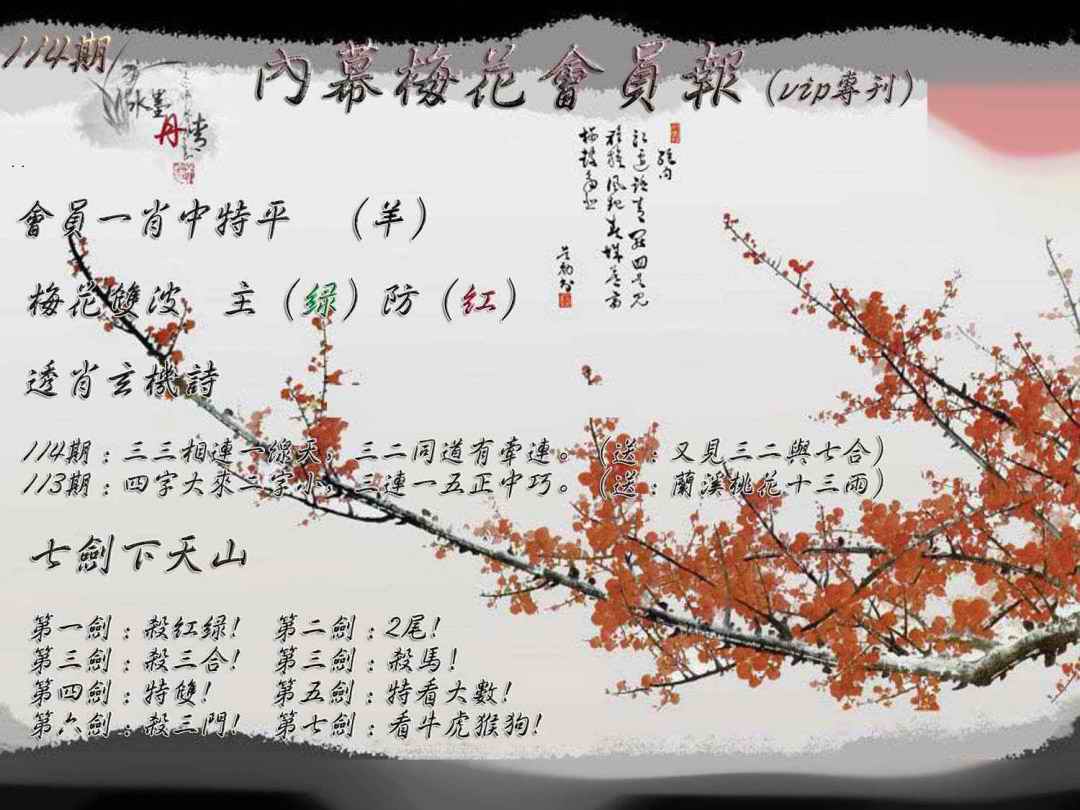 114期
內幕梅花會員報(vip專刊)
水墨
丹青
會員一肖中特平 (羊)
梅花雙波 主(绿)防(红)
透肖玄機詩
114期:三三相連一線天,三二同道有牽連。(送:又見三二與七合)
113期:四字大來二字小,三連一五正中巧。(送:蘭溪桃花十三雨)
七劍下天山
第一劍:殺红绿! 第二劍:2尾!
第三劍:殺三合! 第三劍:殺馬!
第四劍:特雙! 第五劍:特看大數!
第六劍:殺三門! 第七劍:看牛虎猴狗!